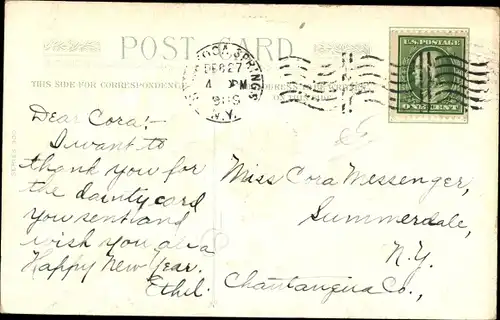 POST CARD
THIS SIDE FOR CORRESPONDENCE
SPRINGS
DEC 27
4 PM
N.Y.
U.S. POSTAGE
ONE CENT
Dear Cora!-
I want to
thank you for
the dainty card
you sent and
wish you all a
Happy New Year.
Ethel.
Miss Cora Messenger,
Summerdale,
N.Y.
Chautauqua Co.,